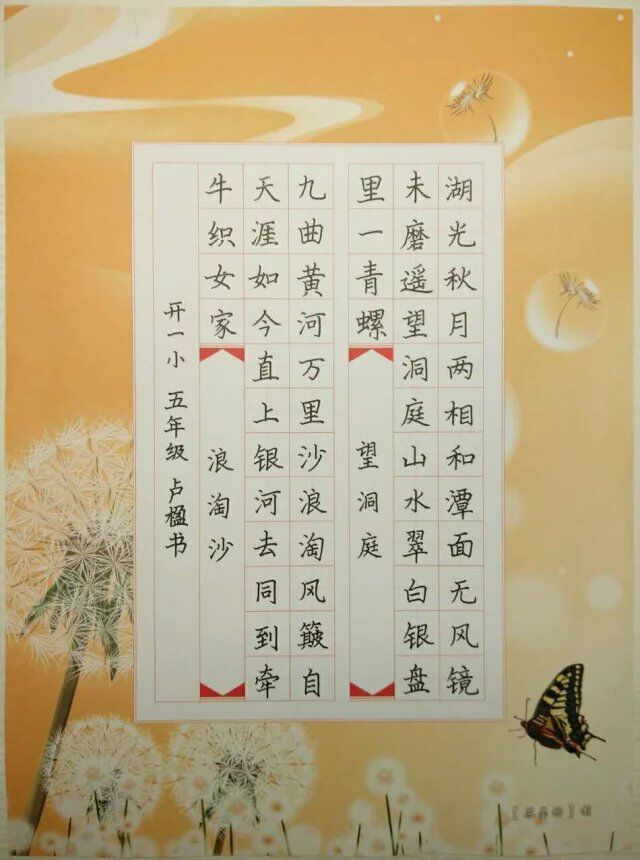 湖光秋月两相和潭面无风镜
未磨遥望洞庭山水翠白银盘
里一青螺
望洞庭
九曲黄河万里沙浪淘风簸自
天涯如今直上银河去同到牵
牛织女家
浪淘沙
开一小 五年级 卢楹书